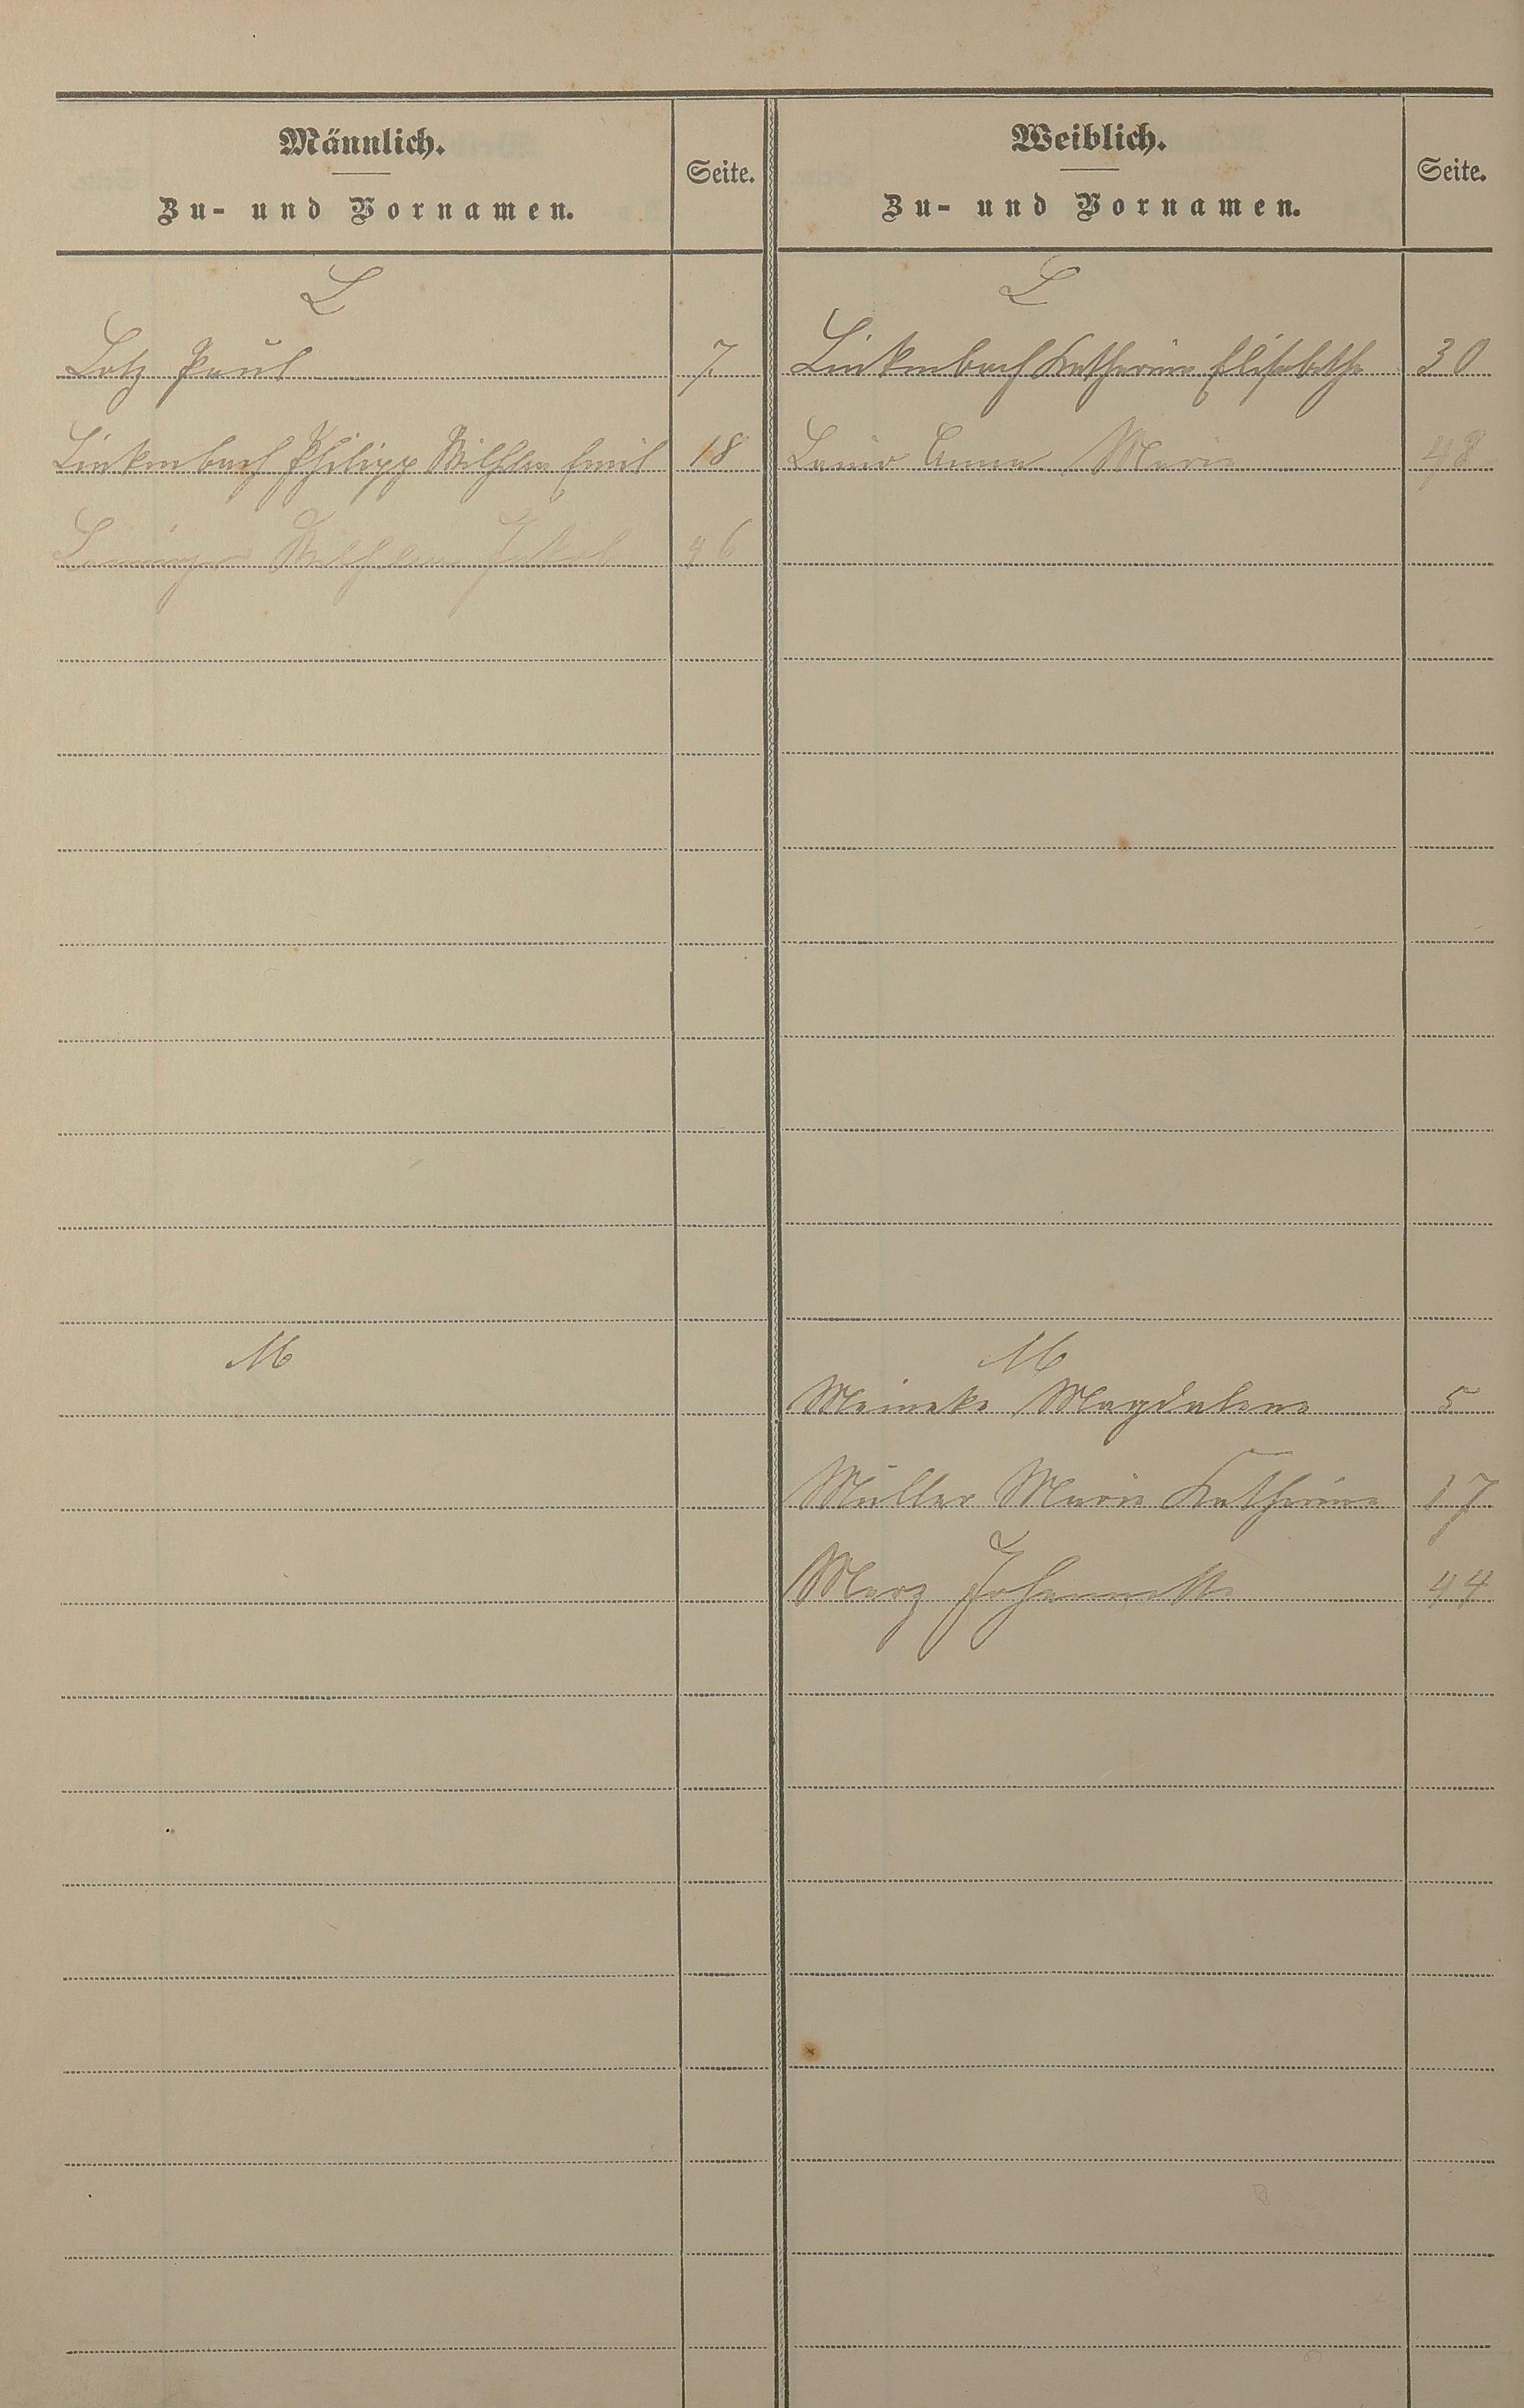 Männlich.
Zu- und Vornamen.
Seite.
Weiblich.
Zu- und Vornamen.
Seite.
L
L
Lotz Paul 7.
Linkenbach Katharine Elisabethe 30
Linkenbach Philipp Wilhelm Emil 18
Anna Marie 48
Wilhelm Jakob 46
M
M
Meineke Magdalene 5
Müller Marie Katharine 17
Merz Johannette 44